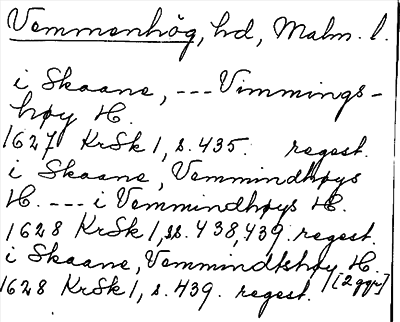 Vemmenhög, hd, Malm. l.
i Skaane, --- Vimmings-
høy H.
1627 KrSk 1, s. 435. regest.
i Skaane, Vemmindhøys
H. --- i Vemmindhøys H.
1628 KrSk 1, ss. 438, 439. regest.
i Skaane, Vemmindtshøy H.
[2 ggr]
1628 KrSk 1, s. 439. regest.